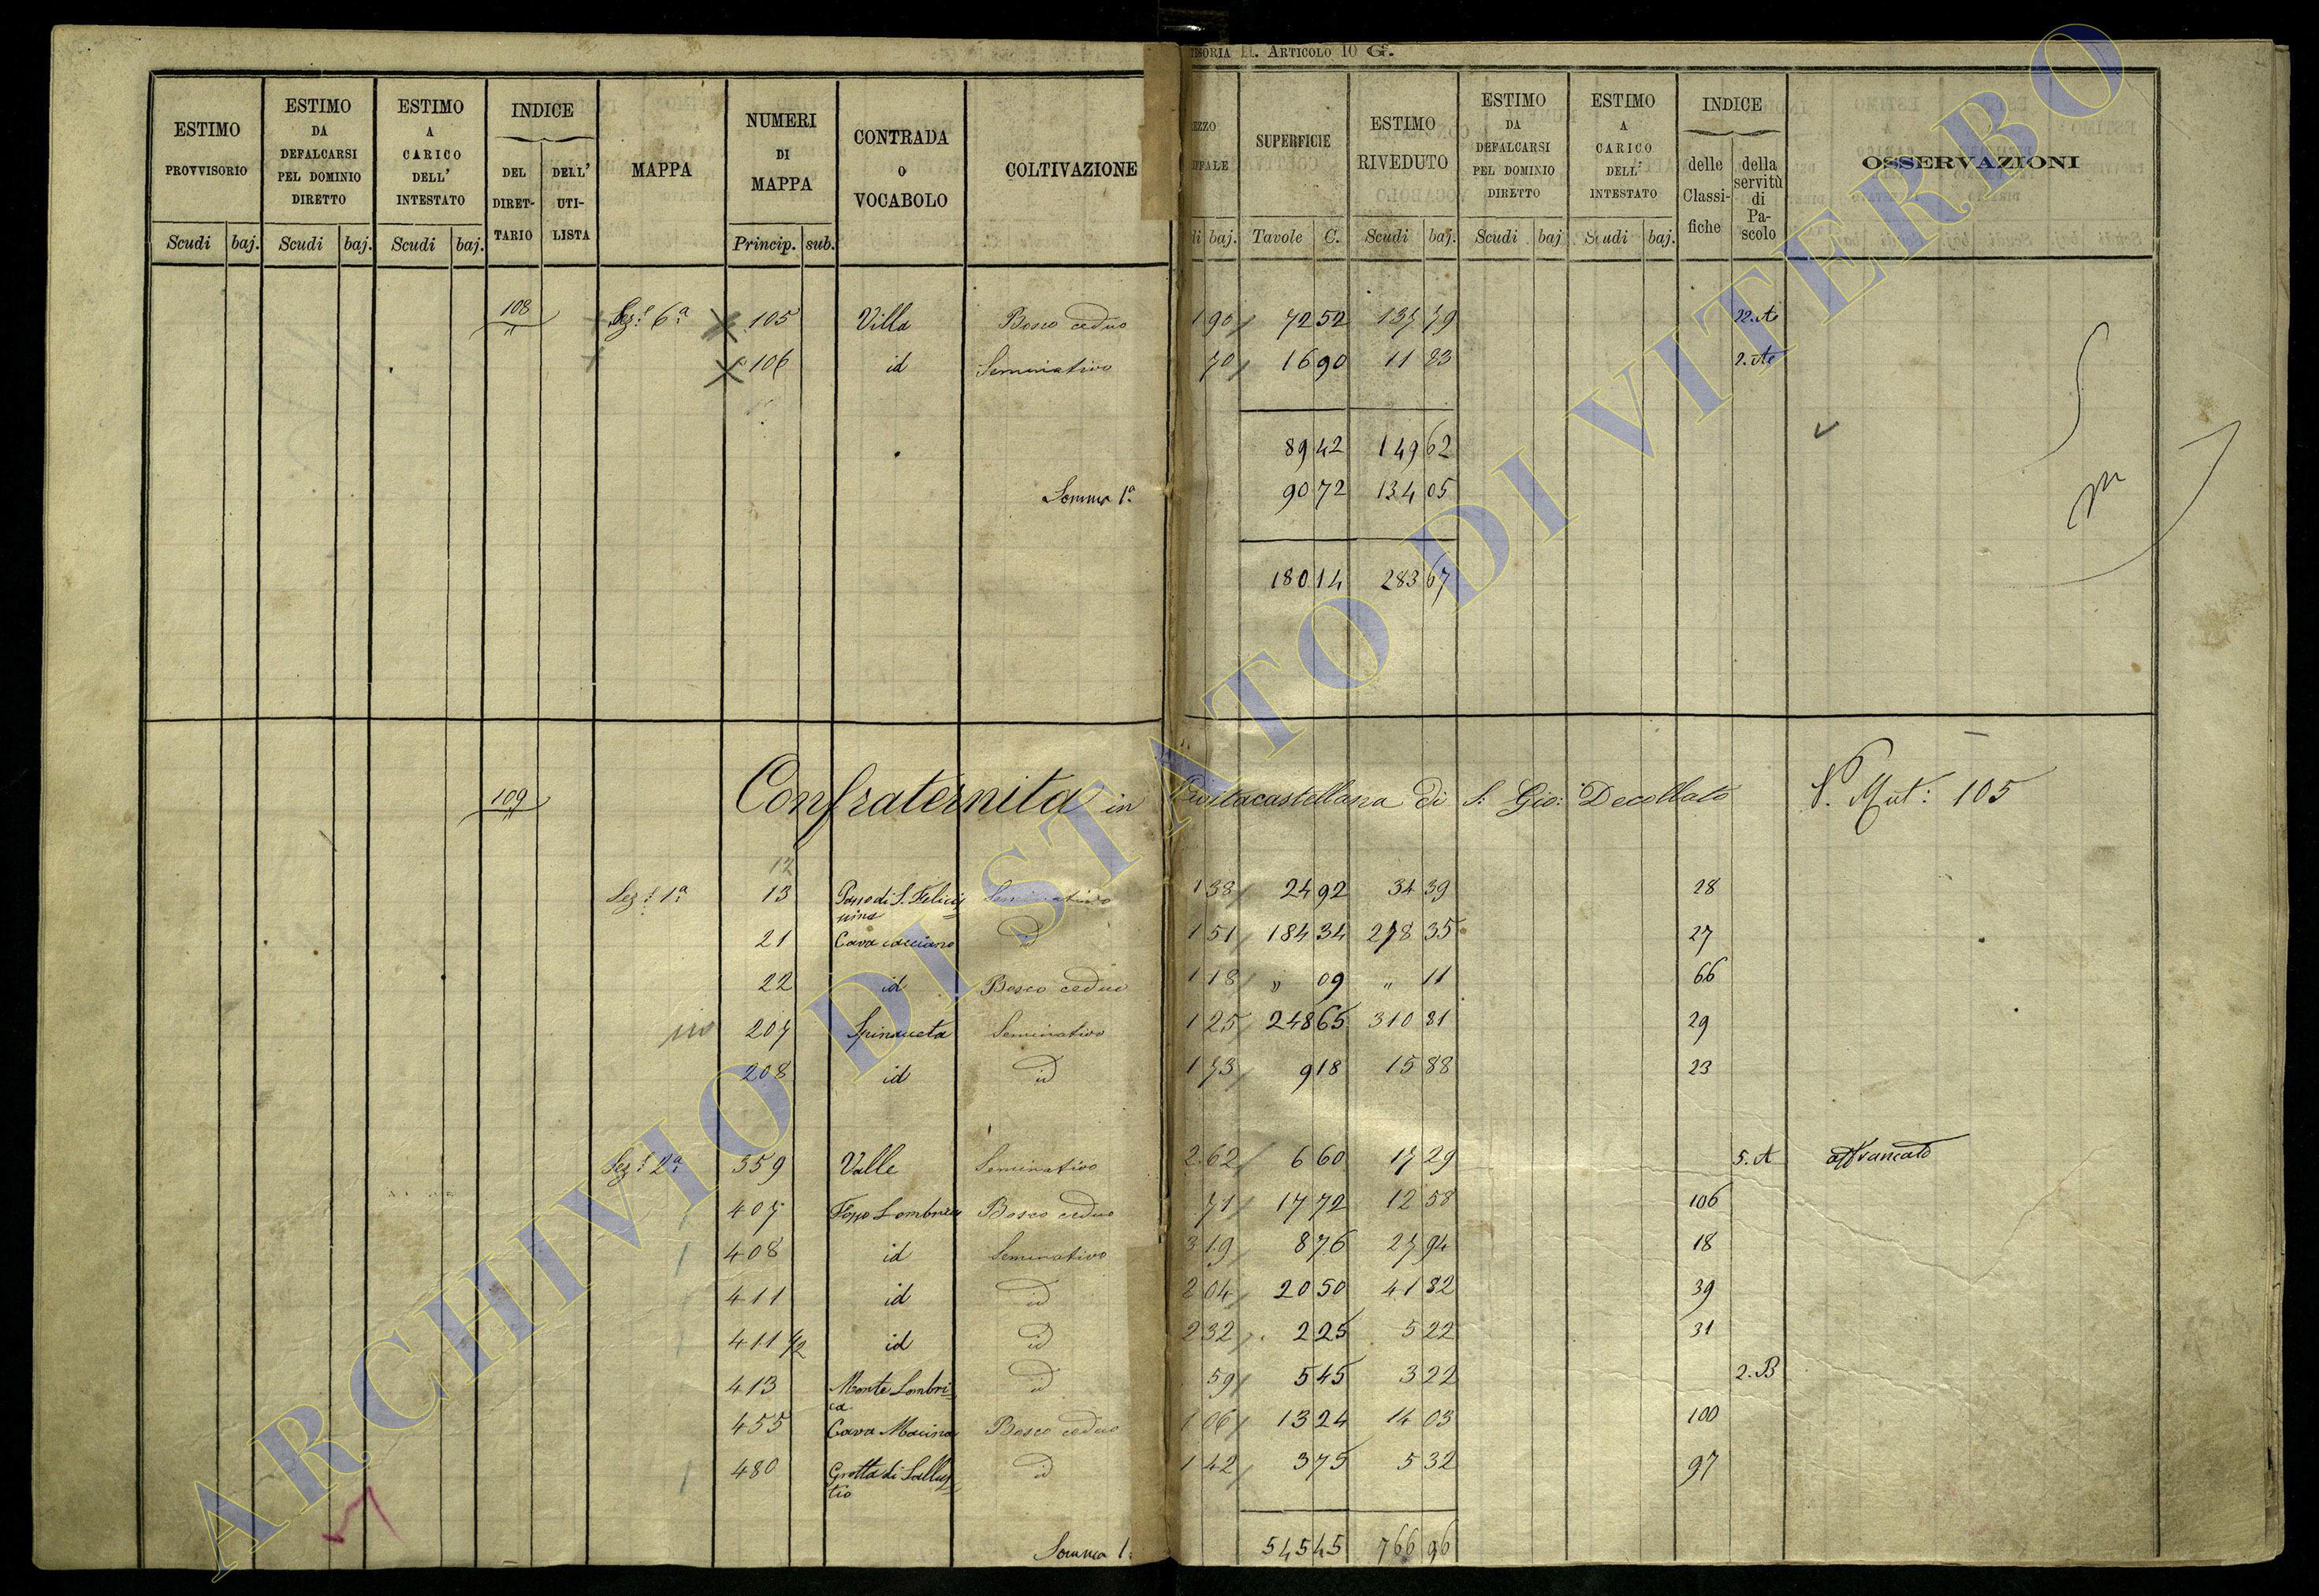 TEGORIA II. ARTICOLO 10 G.
ESTIMO PROVVISORIO Scudi baj.
ESTIMO DA DEFALCARSI PEL DOMINIO DIRETTO Scudi baj.
ESTIMO A CARICO DELL' INTESTATO Scudi baj.
INDICE DEL DIRET- TARIO DELL' UTI- LISTA
MAPPA
NUMERI DI MAPPA Princip. sub.
CONTRADA O VOCABOLO
COLTIVAZIONE
SUPERFICIE Tavole C.
ESTIMO RIVEDUTO Scudi baj.
ESTIMO DA DEFALCARSI PEL DOMINIO DIRETTO Scudi baj
ESTIMO A CARICO DELL' INTESTATO Scudi baj.
INDICE delle Classi- fiche della servitù di Pa- scolo
OSSERVAZIONI
108 Sez.e 6a 105 Villa Bosco ceduo 1 90 72 52 137 79 22. Ae
106 id Seminativo 70 16 90 11 83 2. Ae
89 42 149 62
Somma 1a 90 72 134 05
180 14 283 67
109 Confraternita in Civitacastellana di S. Gio: Decollato V. Mut: 105
12
Sez.e 1a 13 Passo di S. Felicis= Seminativo 1 38 24 92 34 39 28
sima
21 Cava cacciano id 1 51 184 34 278 35 27
22 id Bosco ceduo 1 18 " 09 " 11 66
207 Spinaceta Seminativo 1 25 248 65 310 81 29
208 id id 1 73 9 18 15 88 23
Sez.e 2a 359 Valle Seminativo 2 62 6 60 17 29 5. A affrancato
407 Fosso Lombrica Bosco ceduo 71 17 72 12 58 106
408 id Seminativo 3 19 8 76 27 94 18
411 id id 2 04 20 50 41 82 39
411 1/2 id id 2 32 2 25 5 22 31
413 Monte Lombri= id 59 5 45 3 22 2. B
ca
455 Cava Macina Bosco ceduo 1 06 13 24 14 03 100
480 Grotta di Sallus= id 1 42 3 75 5 32 97
tio
Somma 1a 545 45 766 96
ARCHIVIO DI STATO DI VITERBO